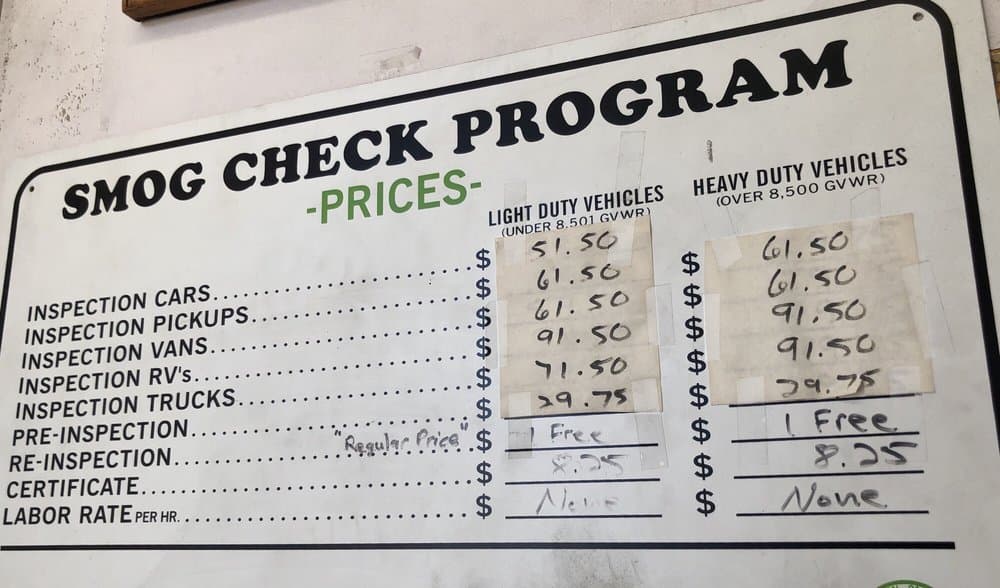 SMOG CHECK PROGRAM
-PRICES-
LIGHT DUTY VEHICLES
(UNDER 8,501 GVWR)
HEAVY DUTY VEHICLES
(OVER 8,500 GVWR)
INSPECTION CARS.......................... $ 51.50
INSPECTION PICKUPS....................... $ 61.50 $ 61.50
INSPECTION VANS.......................... $ 61.50 $ 61.50
INSPECTION RV's.......................... $ 91.50 $ 91.50
INSPECTION TRUCKS........................ $ 71.50 $ 91.50
PRE-INSPECTION........................... $ 29.75 $ 29.75
RE-INSPECTION............ "Regular Price" $ 1 Free $ 1 Free
CERTIFICATE.............................. $ 8.25 $ 8.25
LABOR RATE PER HR........................ $ None $ None